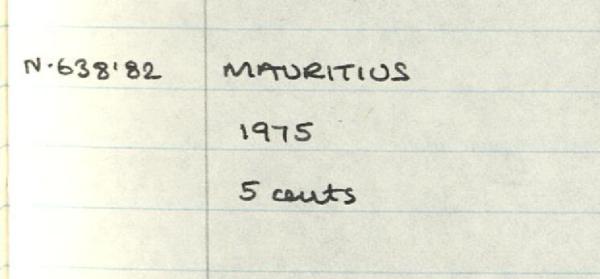 N.638'82 MAURITIUS
1975
5 cents